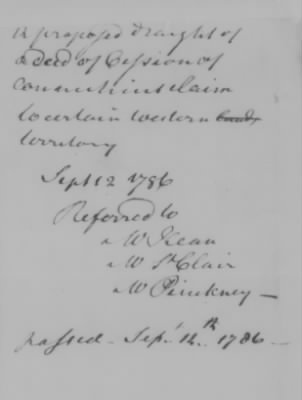 A proposed draught of
a deed of Cession of
Connecticut claim
to certain western lands
territory
Sept 12 1786
Referred to
Mr Kean
Mr St Clair
Mr Pinckney —
passed - Sept 14th 1786 —